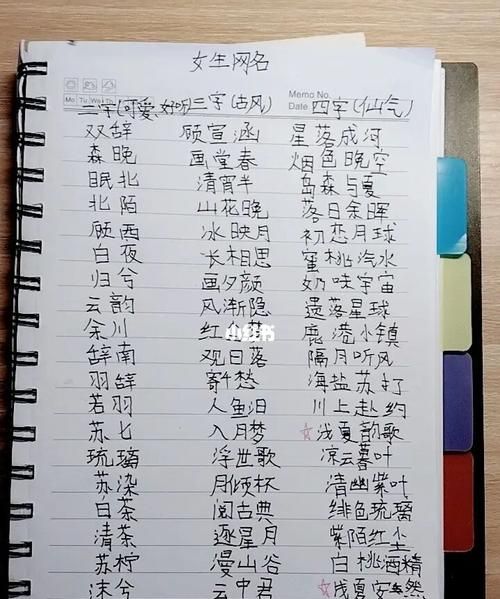 女生网名
Memo No.
Mo Tu We Th
Date
二字(可爱、好听) 三字(古风) 四字(仙气)
双辞 顾宣涵 星落成河
森晚 画堂春 烟色晚空
眠北 清宵半 岛森与夏
北陌 山花晚 落日余晖
顾西 冰映月 初恋月球
白夜 长相思 蜜桃汽水
归兮 画夕颜 奶味宇宙
云韵 风渐隐 遗落星球
余川 红 鹿港小镇
小红书
辞南 观日落 隔月听风
羽辞 寄千愁 海盐苏打
若羽 人鱼泪 川上赴约
苏七 入月梦 ☆浅夏韵歌
琉璃 浮世歌 凉云暮叶
苏染 月倾杯 清幽紫叶
白茶 阅古典 绯色琉璃
清茶 逐星月 紫陌红尘
苏柠 漫山谷 白桃酒精
沫兮 云中君 ☆浅夏安然